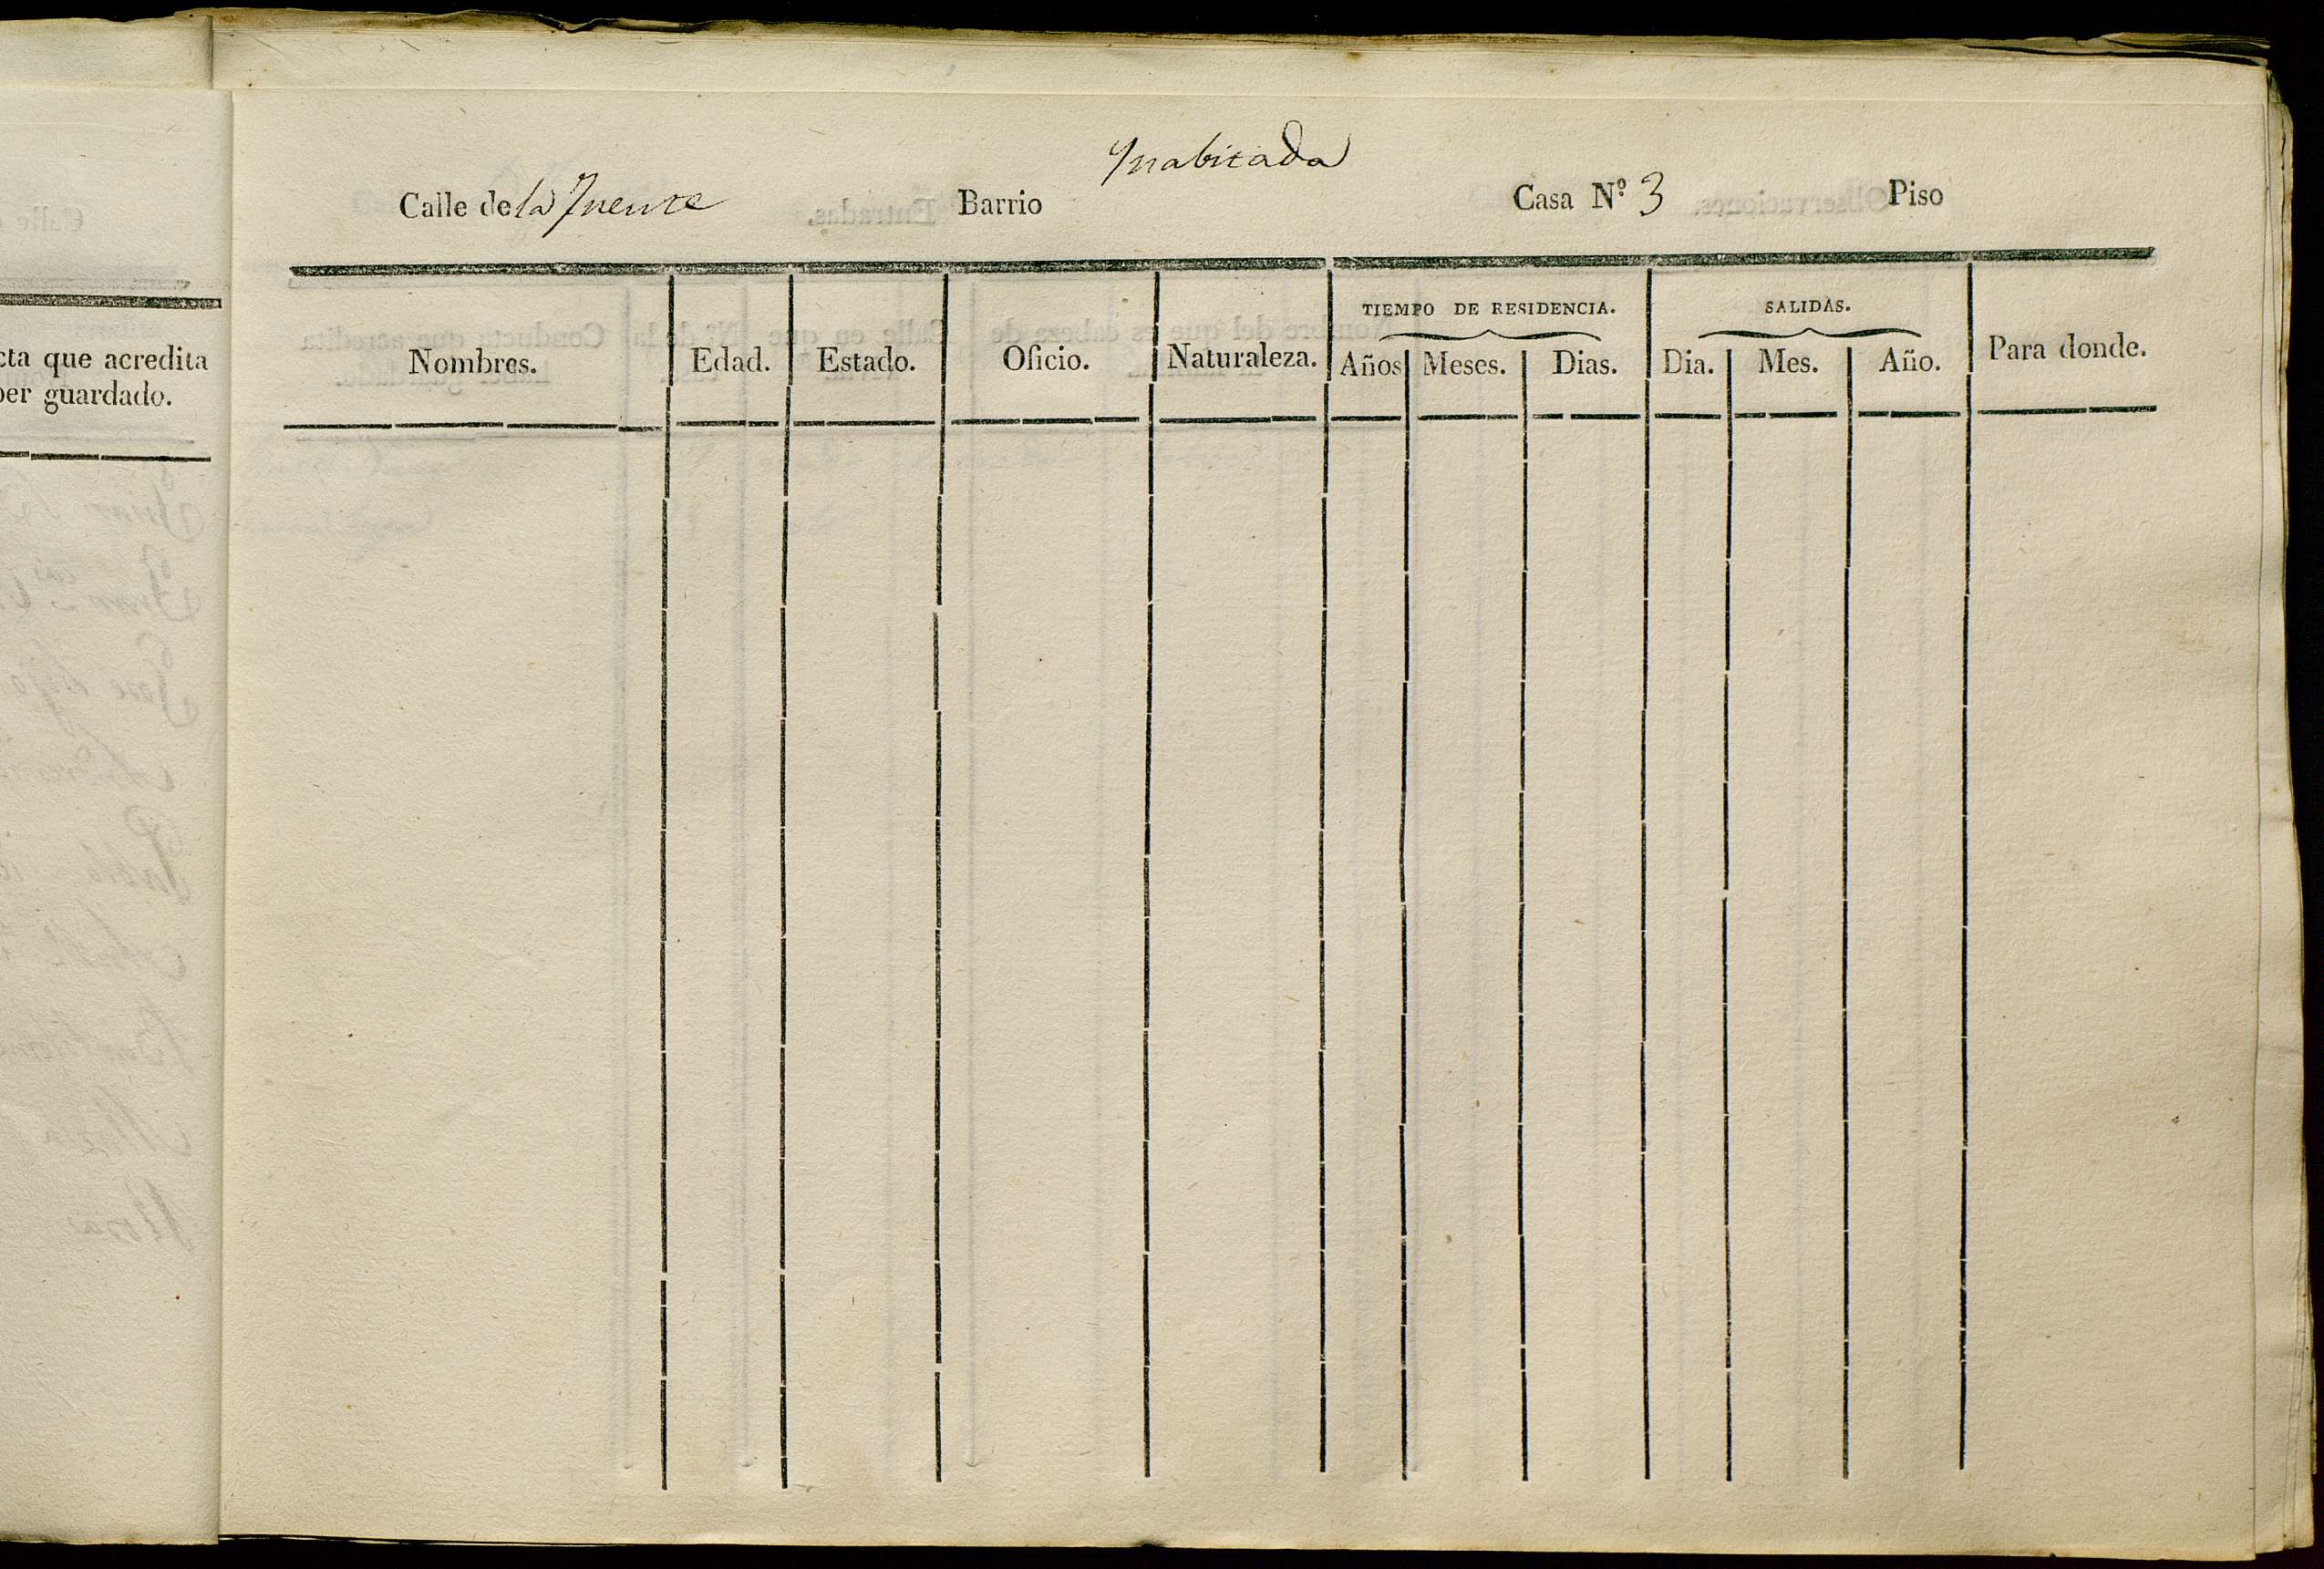 Ynabitada
Calle de la Fuente Barrio Casa N.º 3 Piso
TIEMPO DE RESIDENCIA. SALIDAS.
Nombres. Edad. Estado. Oficio. Naturaleza. Años Meses. Dias. Dia. Mes. Año. Para donde.
cta que acredita
ber guardado.